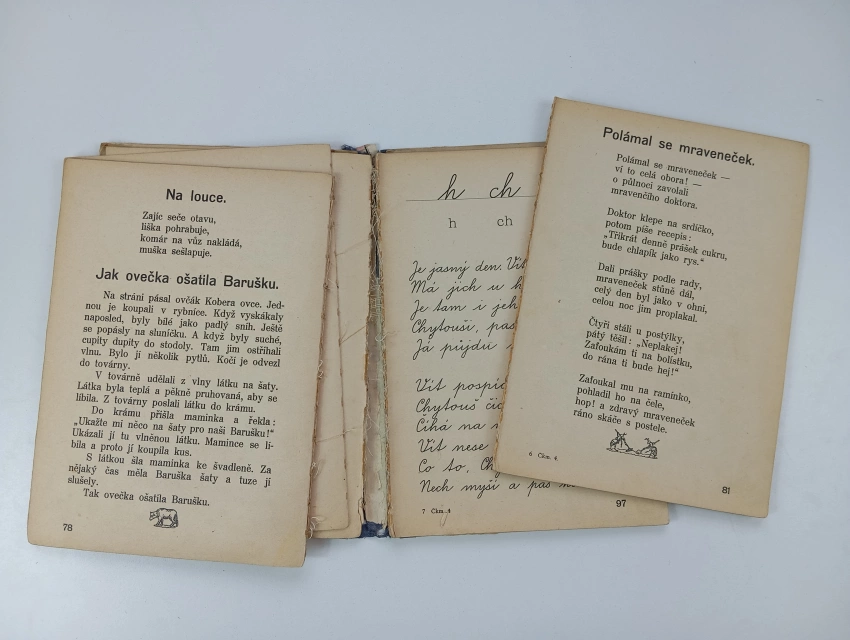 Na louce.
Zajíc seče otavu,
liška pohrabuje,
komár na vůz nakládá,
muška sešlapuje.
Jak ovečka ošatila Barušku.
Na stráni pásal ovčák Kobera ovce. Jed-
nou je koupali v rybníce. Když vyskákaly
naposled, byly bílé jako padlý sníh. Ještě
se popásly na sluníčku. A když byly suché,
cupity dupity do stodoly. Tam jim ostříhali
vlnu. Bylo jí několik pytlů. Kočí je odvezl
do továrny.
V továrně udělali z vlny látku na šaty.
Látka byla teplá a pěkně pruhovaná, aby se
líbila. Z továrny poslali látku do krámu.
Do krámu přišla maminka a řekla:
„Ukažte mi něco na šaty pro naši Barušku!"
Ukázali jí tu vlněnou látku. Mamince se lí-
bila a proto jí koupila kus.
S látkou šla maminka ke švadleně. Za
nějaký čas měla Baruška šaty a tuze jí
slušely.
Tak ovečka ošatila Barušku.
78
h ch
h ch
Je jasný den. Vít
Má jich u
Je tam i
Chytouši,
Já půjdu
Vít
Chytouš
Číhá na
Vít nese
Co to,
Nech myší a
7 Chm. 4
97
Polámal se mraveneček.
Polámal se mraveneček —
ví to celá obora! —
o půlnoci zavolali
mravenčího doktora.
Doktor klepe na srdíčko,
potom píše recepis:
„Třikrát denně prášek cukru,
bude chlapík jako rys."
Dali prášky podle rady,
mraveneček stůně dál,
celý den byl jako v ohni,
celou noc jim proplakal.
Čtyři stáli u postýlky,
pátý těšil: „Neplakej!
Zafoukám ti na bolístku,
do rána ti bude hej!"
Zafoukal mu na ramínko,
pohladil ho na čele,
hop! a zdravý mraveneček
ráno skáče s postele.
6 Chm. 4.
81